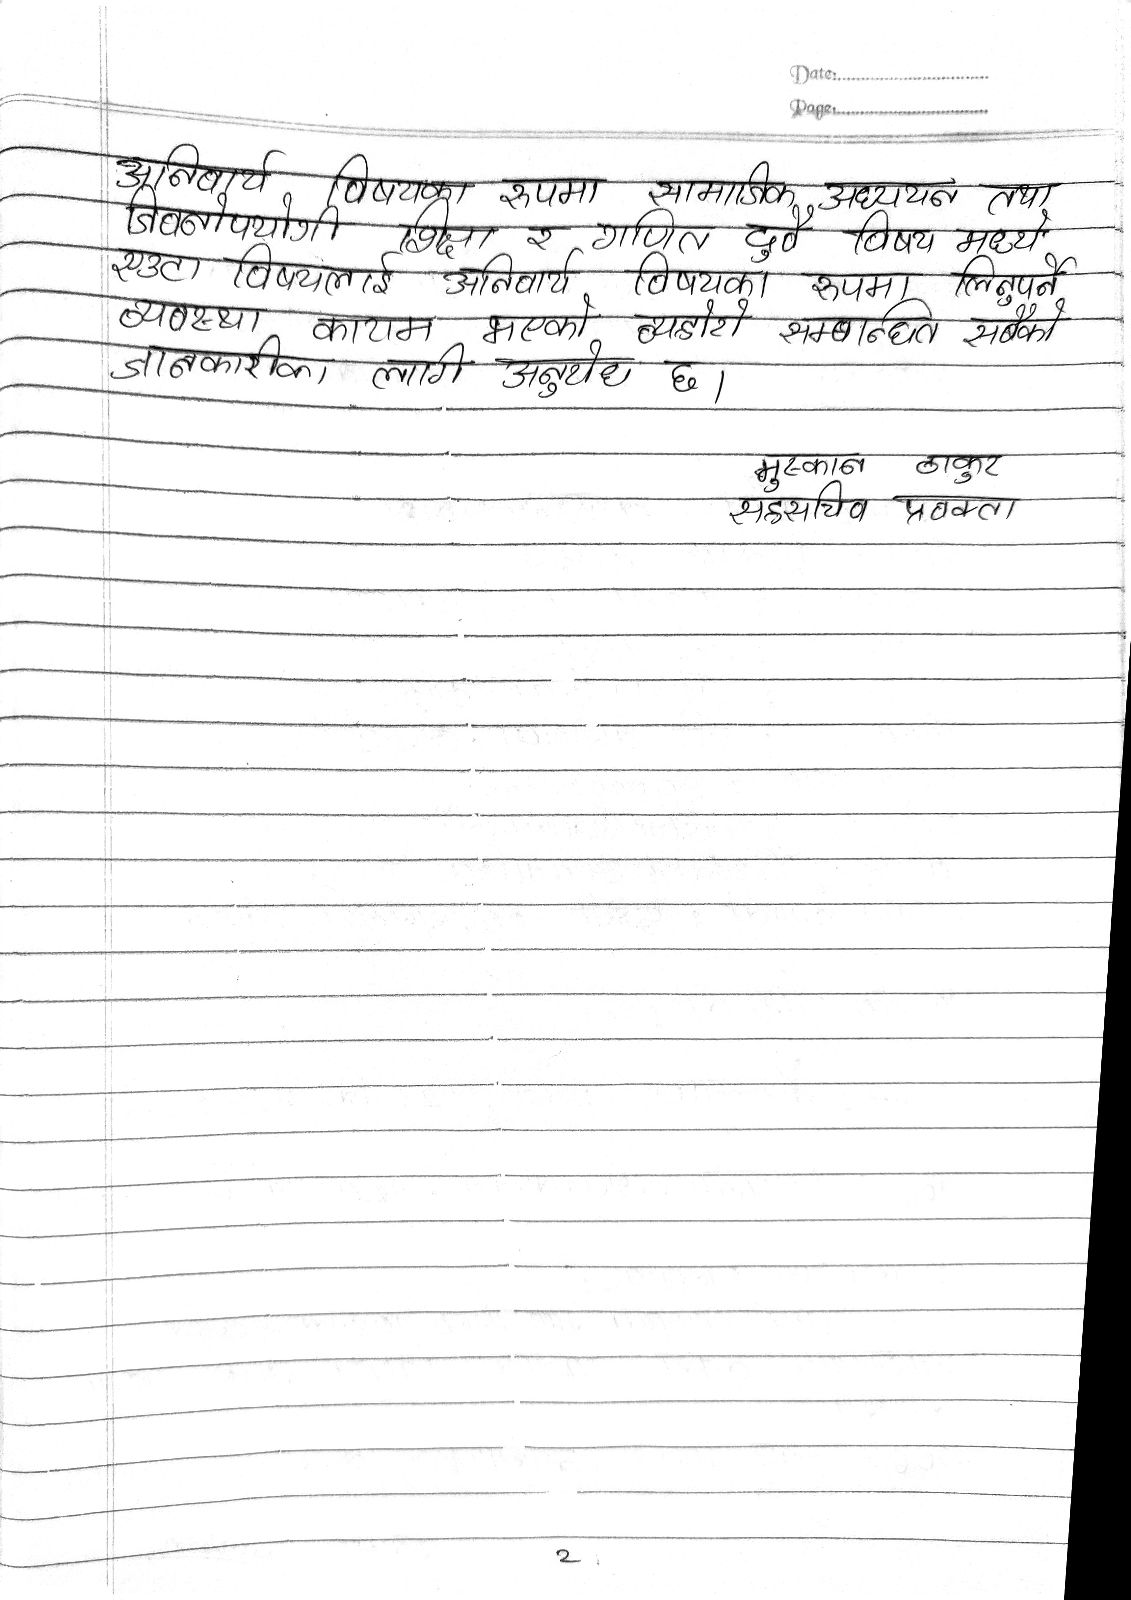 Date:
Page:
अनिवार्य विषयका रुपमा सामाजिक अध्ययन तथा
जिवनोपयोगी शिक्षा र गणित दुवै विषय मध्ये
एउटा विषयलाई अनिवार्य विषयका रुपमा लिनुपर्ने
व्यवस्था कायम भएको व्यहोरो सम्बन्धित सबैको
जानकारीका लागी अनुरोध छ।
मुस्कान ठाकुर
सहसचिव प्रवक्ता
2